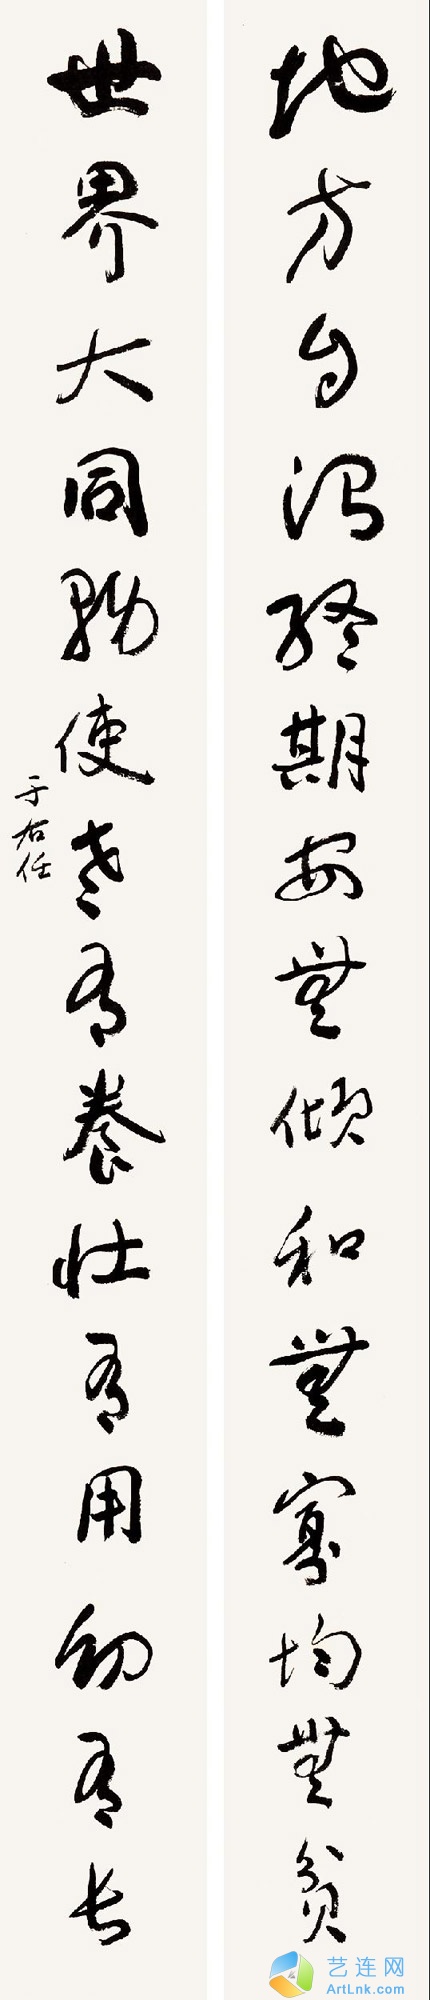 地方自治终期安無傾和無寡均無貧
世界大同勉使老有養壮有用幼有长
于右任
艺连网
ArtLnk.com